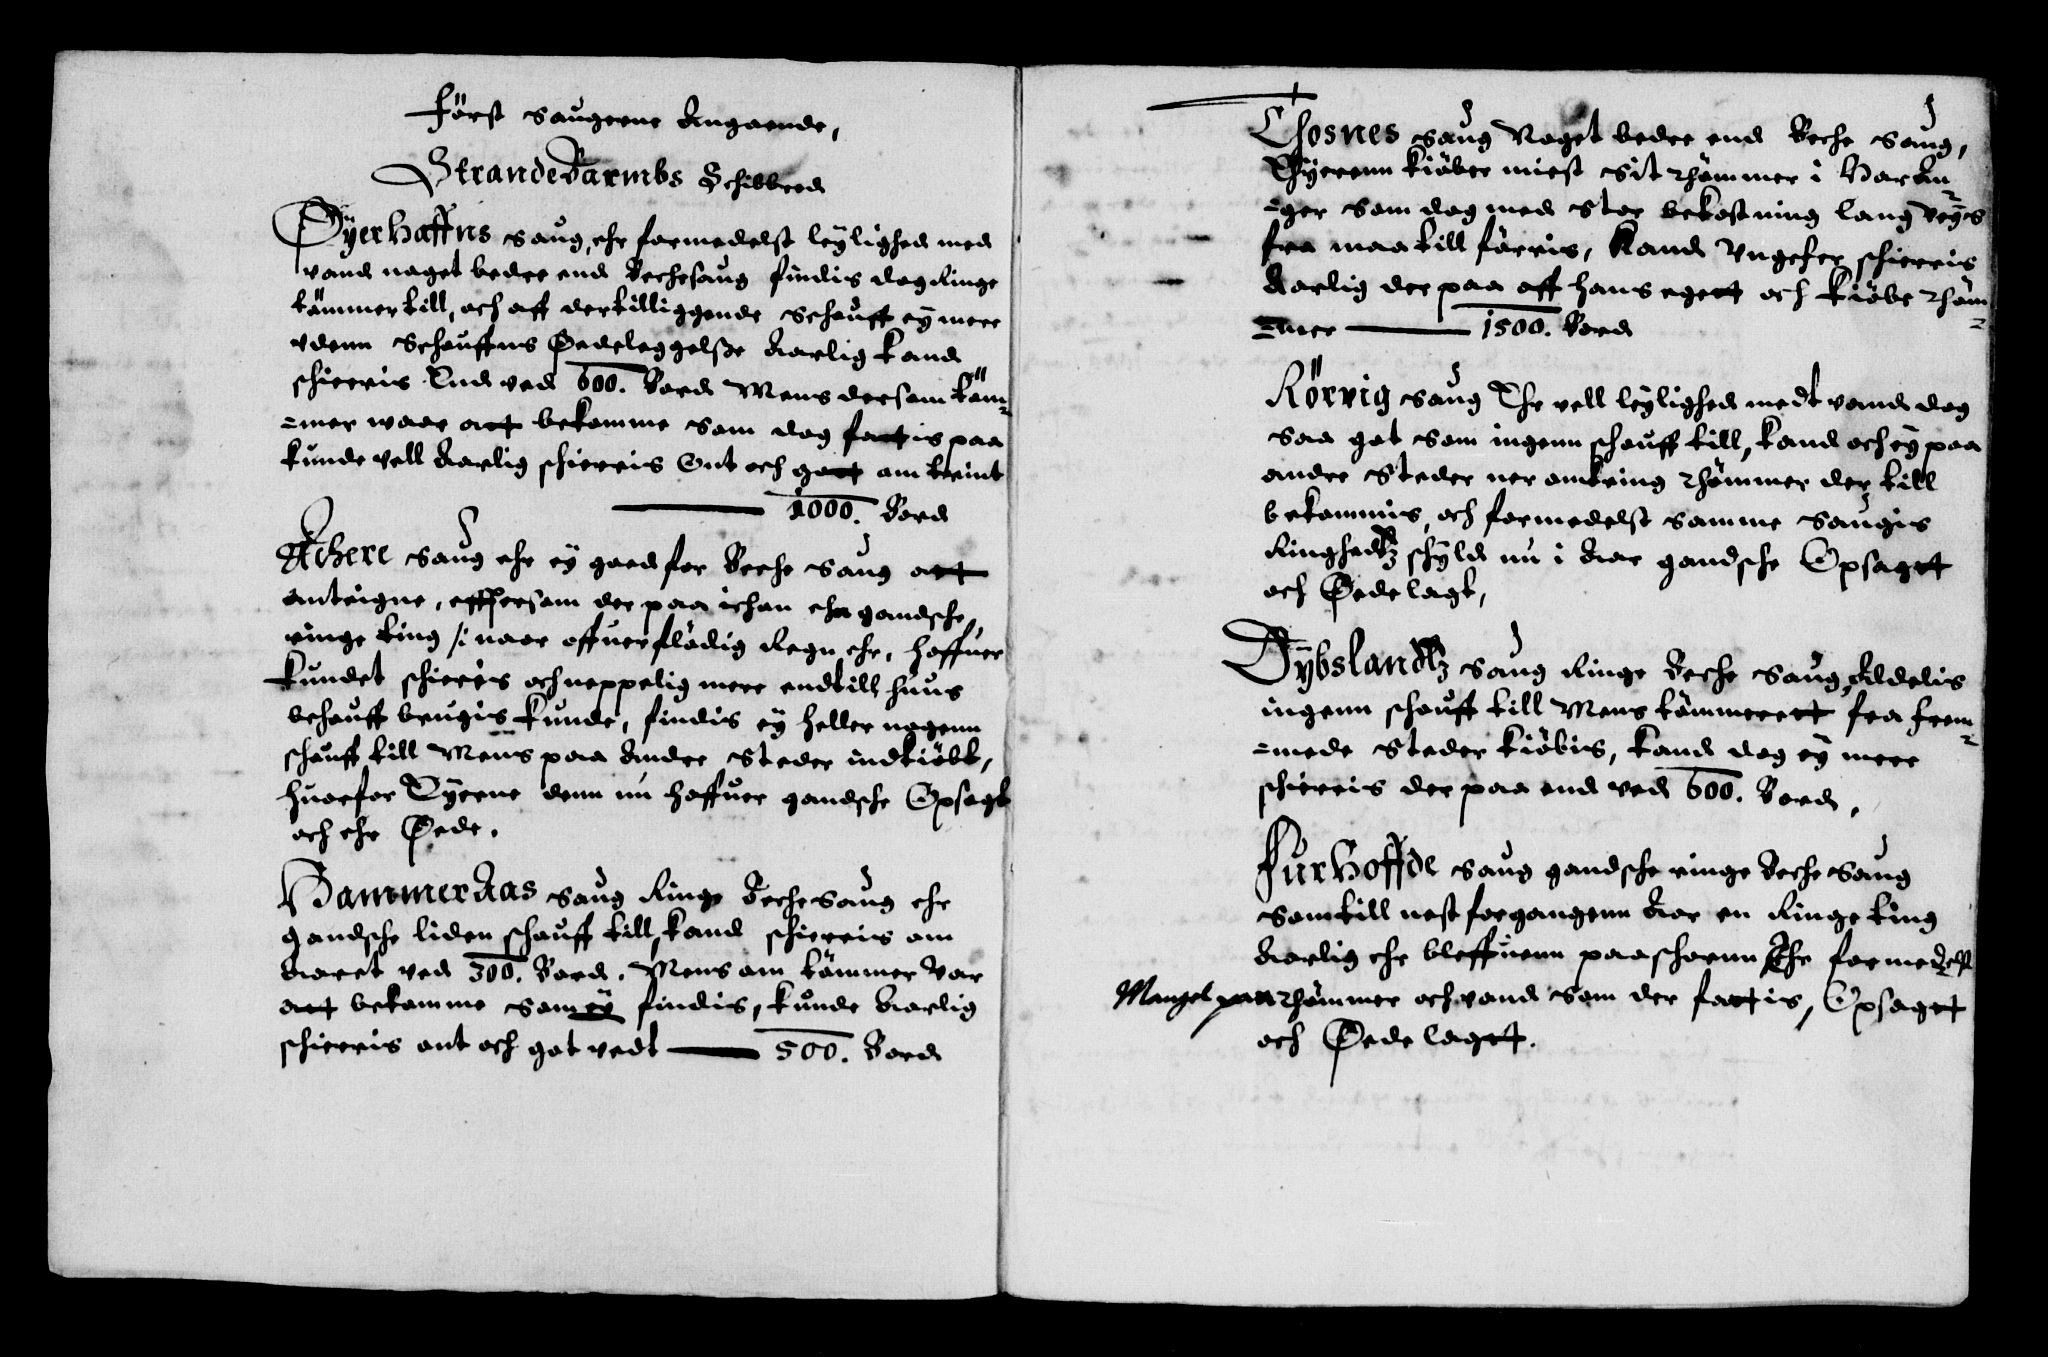 Först Saugerne Angaaende,
Strandebarmbs Schibbred
Øyerhaffns Saug, ehr formedelst leylighed med
vand noget bedre end Bechesaug findis dog Ringe
tömmer till, och aff dertilliggende Schouff ey mere
vdenn Schouffens Ødeleggelsse Aarlig kand
schierris End ved 600. Bord Mens dersom töm¬
=mer waar att bekomme som dog fattis paa
kunde vell Aarlig schierris Ont och gott omtrint
1000. Bord
Achere Saug ehr ey goed for Beche Saug att
anteigne, effttersom der paa ichon ehn gandsche
ringe ting /: naar offuerflödig Regn ehr, haffuer
kundet schierris och neppelig mere endtill huus
behouff brugis kunde, findis ey heller nogenn
schouff till Mens paa Andre Steder indkiöbt,
huorfor Eyerne denn nu haffuer gandsche Opsagt
och ehr Øede.
Hammeraas Saug Ringe Beche Saug ehr
gandsche liden schouff till, kand schierris om
Aaret ved 300. Bord. Mens om tömmer var
att bekomme som ey findis, kunde Aarlig
schierris ont och got vedt 500. Bord
Thosnes Saug Noget bedre end Beche Saug,
Eyerenn kiöber miest sit thömmer i Hardan¬
=ger som dog med stor bekostning lang veys
fra maa till förris, Kand Vngefer schierris
Aarlig der paa aff hans egett och kiöbe thöm¬
=mer 1500. Bord
Rörvig Saug Ehr vell leylighed medt vand dog
saa got som ingenn schouff till, kand och ey paa
andre Steder ner omkring thömmer der till
bekommis, och formedelst samme Saugis
Ringhedtz schyld nu i Aar gandsche Opsagtt
och Øede lagt,
Dybslandtz Saug Ringe Beche Saug, Aldelis
ingenn schouff till Mens tömmerett fra frem¬
=mede Steder kiöbis, kand dog ey mere
schierris der paa end ved 600. Bord.
Furhoffde Saug gandsche ringe Beche Saug
som till nest forgangenn Aar en Ringe ting
Aarlig ehr bleffuenn paaschornn Ehr formedelst
Mangel paa thömmer och vand som der fattis, Opsagtt
och Øede lagtt.